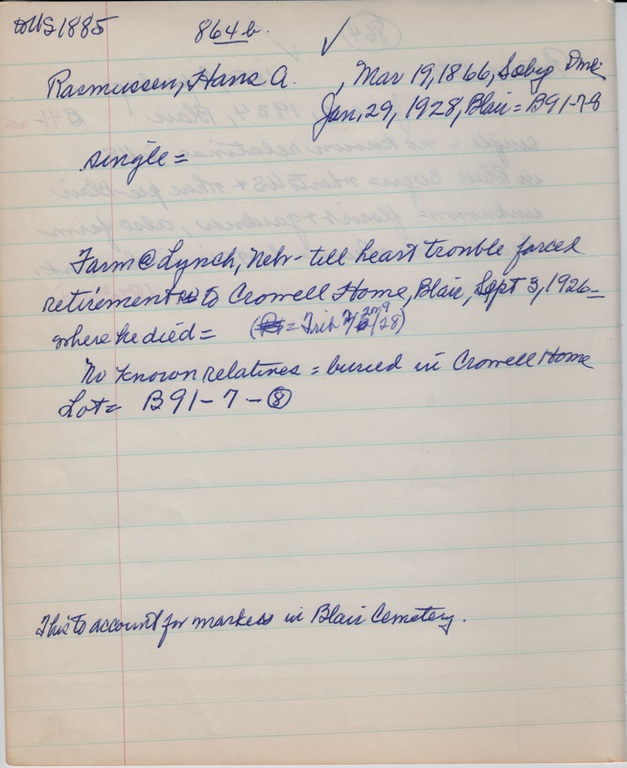 to US 1885 864b. ✓
Rasmussen, Hans A. , Mar 19, 1866, Soby Dmk
Jan, 29, 1928, Blair = B91-7-8
single =
Farm @ Lynch, Nebr - till heart trouble forced
retirement to Crowell Home, Blair, Sept 3, 1926 -
where he died = Trib 2/ /28)
No known relatives = buried in Crowell Home
Lot = B91-7-8
This to account for markers in Blair Cemetery.